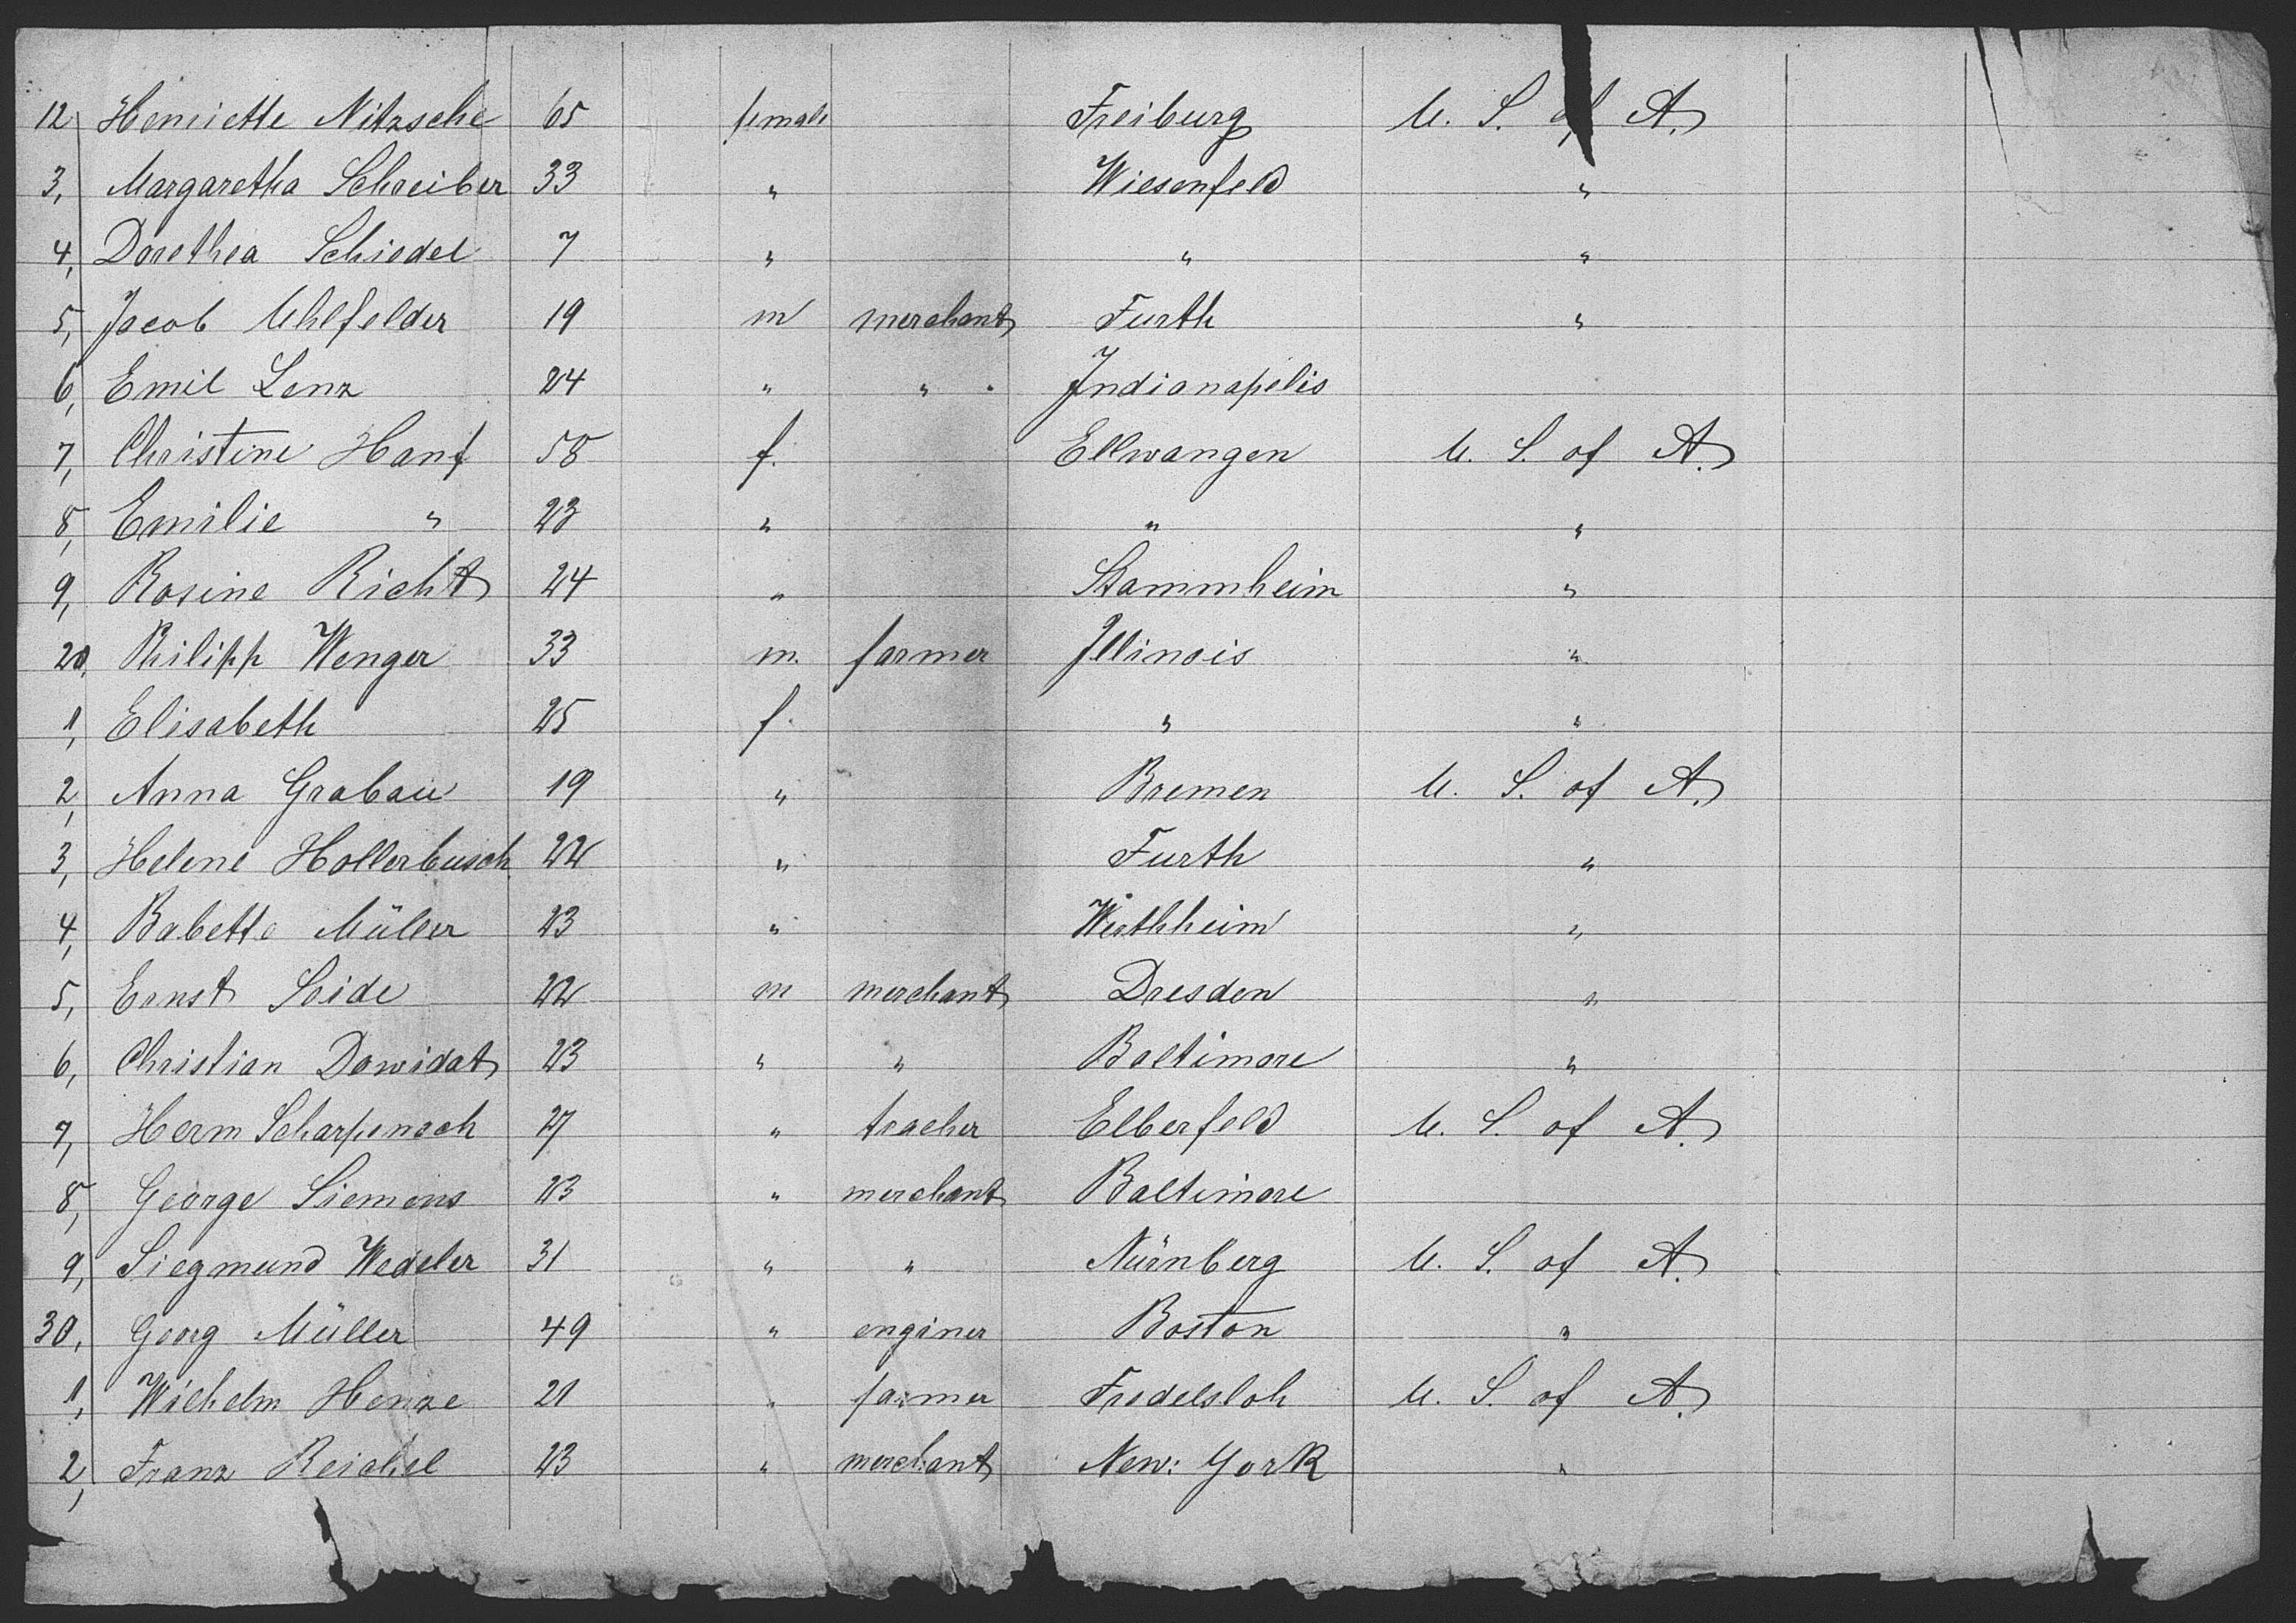 12, Henriette Nitzsche 65 female Freiburg U. S. of A.
3, Margaretha Schreiber 33 " Wiesenfeld "
4, Dorethea Schiedel 7 " " "
5, Jacob Uhlfelder 19 m merchant Furth "
6, Emil Lenz 24 " " Indianapolis
7, Christine Hanf 58 f. Ellwangen U. S. of A.
8, Emilie " 23 " " "
9, Rosine Richt 24 " Stammheim "
20, Philipp Wenger 33 m. farmer Illinois "
1, Elisabeth 25 f. " "
2, Anna Grabau 19 " Bremen U. S. of A.
3, Helene Hollerbusch 22 " Furth "
4, Babette Müller 23 " Wirthheim "
5, Ernst Seide 22 m merchant Dresden "
6, Christian Dawidat 23 " " Baltimore "
7, Herm Scharpenach 27 " teacher Elberfeld U. S. of A.
8, George Siemens 23 " merchant Baltimore
9, Siegmund Wedeler 31 " " Nürnberg U. S. of A.
30, Georg Müller 49 " enginer Boston "
1, Wilhelm Henze 21 " farmer Fredelsloh U. S. of A.
2, Franz Reichel 23 " merchant New: York "